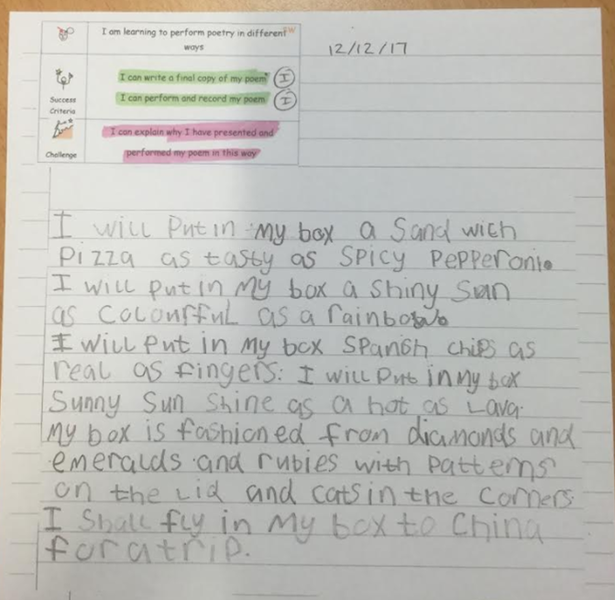 I am learning to perform poetry in different
ways
12/12/17
I can write a final copy of my poem I
I can perform and record my poem I
Success
Criteria
I can explain why I have presented and
performed my poem in this way
Challenge
I will Put in my box a Sand wich
Pizza as tasty as SPicy PePPeroni.
I will put in My box a Shiny Sun
as Colourfful as a rainbow
I will Put in My box SPanish chips as
real as fingers. I will Put in My box
Sunny Sun Shine as a hot as Lava.
My box is fashioned from diamonds and
emeralds and rubies with Patterns
on the Lid and cats in the Corners
I Shall fly in My box to China
for a trip.